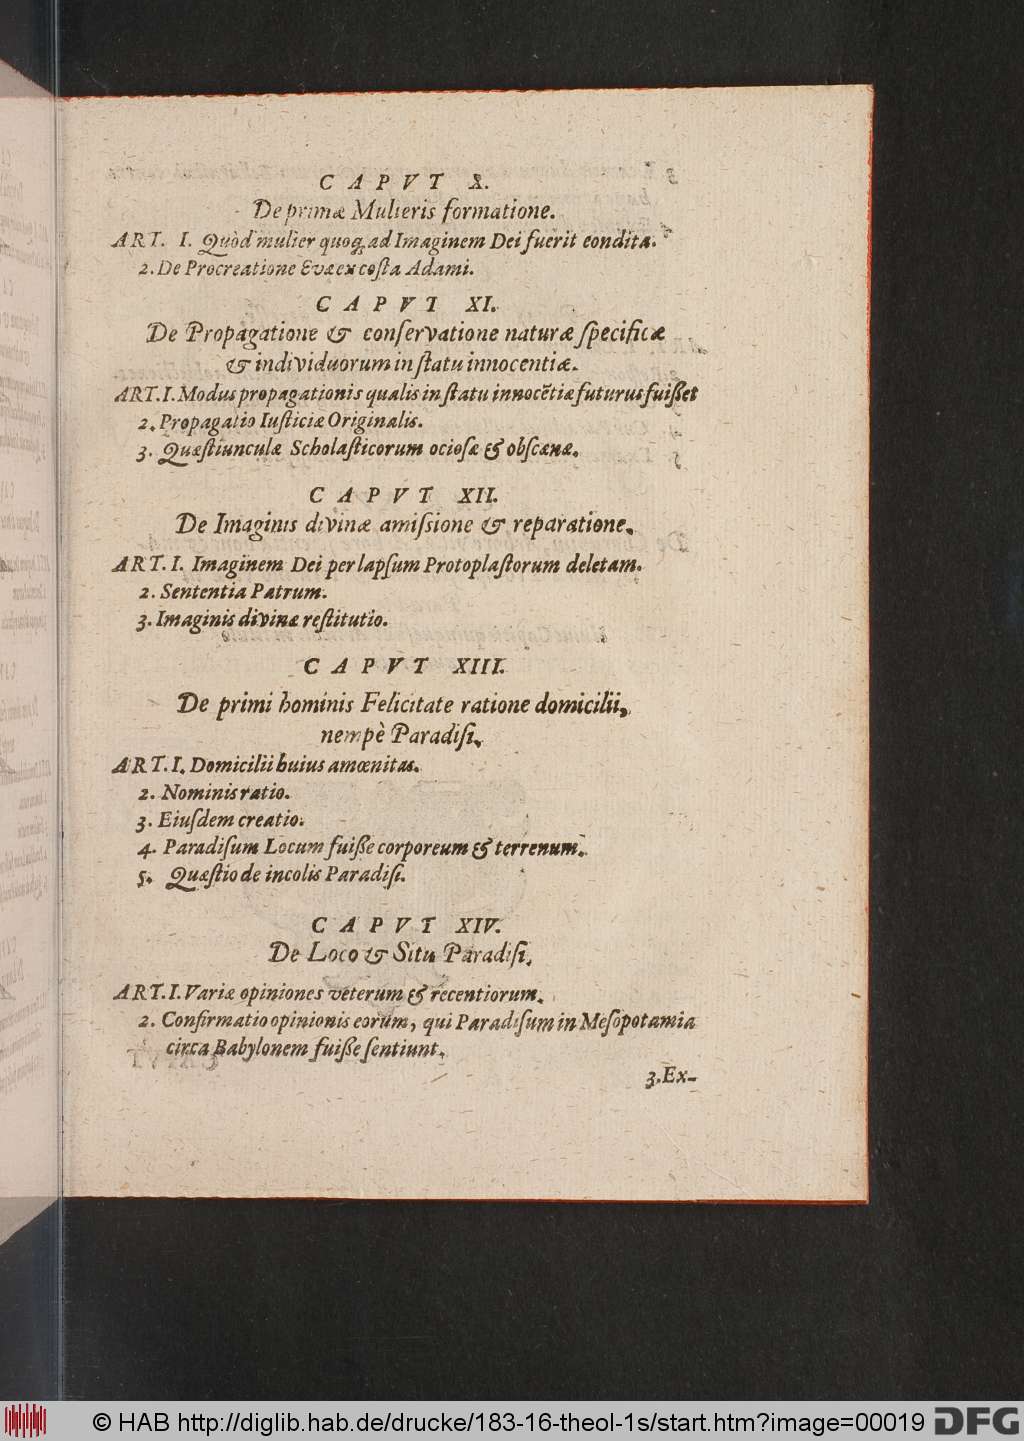 CAPVT X.
De primæ Mulieris formatione.
ART. I. Quòd mulier quoq; ad Imaginem Dei fuerit condita.
2. De Procreatione Evæ ex costa Adami.
CAPVT XI.
De Propagatione & conservatione naturæ specificæ
& individuorum in statu innocentiæ.
ART. I. Modus propagationis qualis in statu innocẽtiæ futurus fuißet
2. Propagatio Iusticiæ Originalis.
3. Quæstiunculæ Scholasticorum ociosæ & obscænæ.
CAPVT XII.
De Imaginis divinæ amissione & reparatione.
ART. I. Imaginem Dei per lapsum Protoplastorum deletam.
2. Sententia Patrum.
3. Imaginis divinæ restitutio.
CAPVT XIII.
De primi hominis Felicitate ratione domicilii,
nempè Paradisi.
ART. I. Domicilii huius amœnitas.
2. Nominis ratio.
3. Eiusdem creatio.
4. Paradisum Locum fuiße corporeum & terrenum.
5. Quæstio de incolis Paradisi.
CAPVT XIV.
De Loco & Situ Paradisi.
ART. I. Variæ opiniones veterum & recentiorum.
2. Confirmatio opinionis eorum, qui Paradisum in Mesopotamia
circa Babylonem fuiße sentiunt.
3. Ex-
© HAB http://diglib.hab.de/drucke/183-16-theol-1s/start.htm?image=00019 DFG